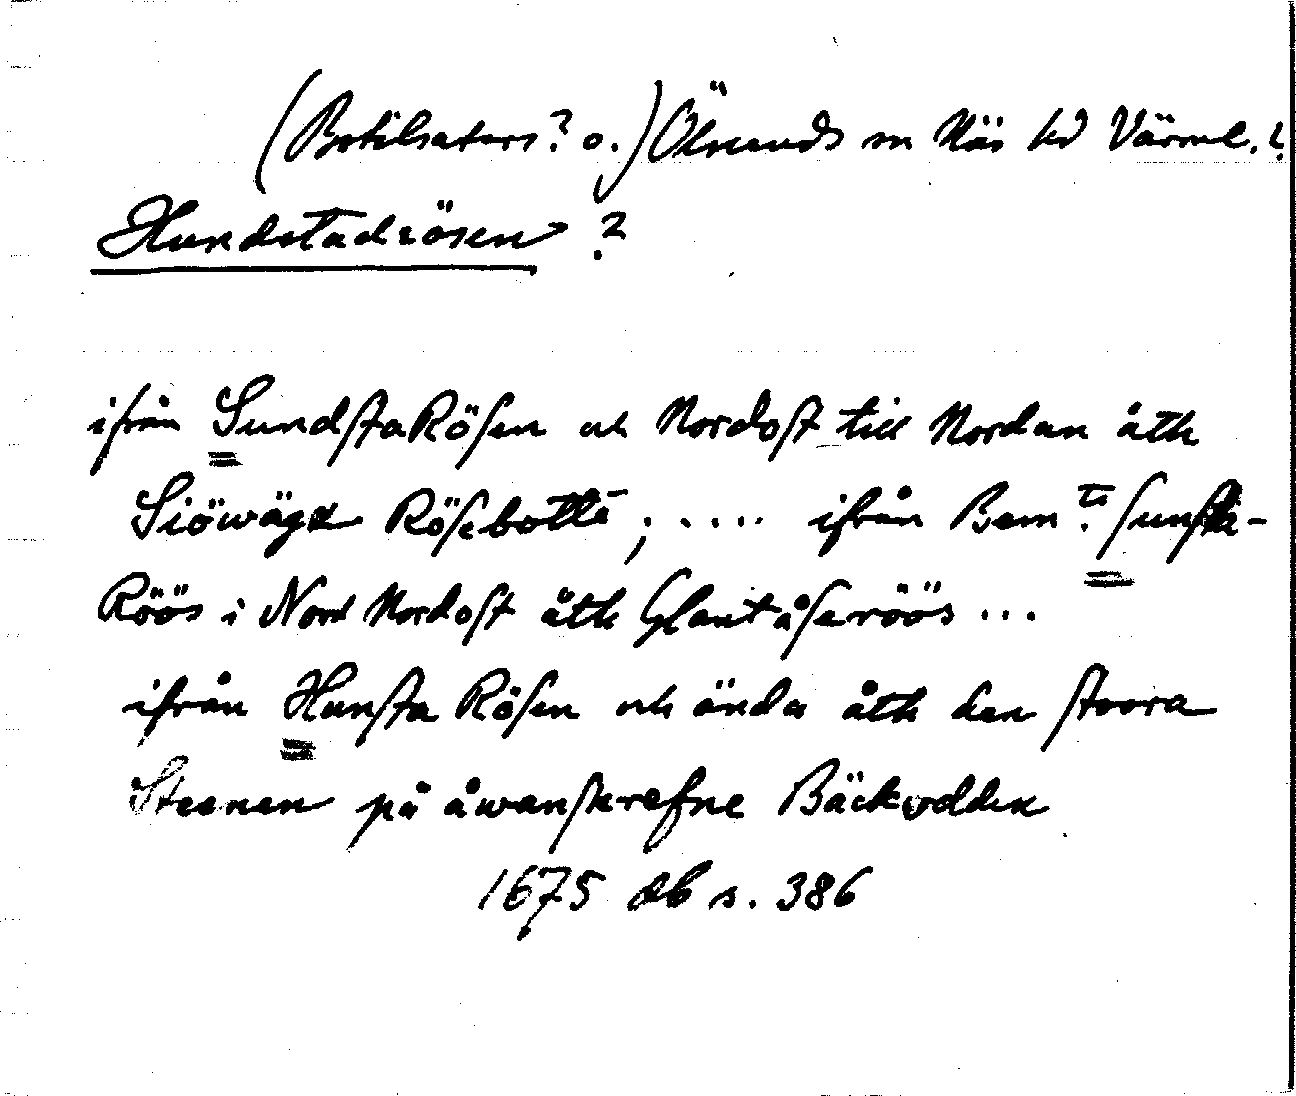 (Botilsäters? o.) Ölseruds sn Näs hd Värml.?
Hundstadrösen ?
ifrån SundstaRösen uh Nordost till Nordan åth
Siöwägz Rösebotte, ..... ifrån Bem.te sunsta-
Röös i Nord Nordost åth Glantåseröös ...
ifrån Hunsta Rösen uh ända åth den stoora
Steenen på åwanskrefne Bäckodden
1675 db s. 386